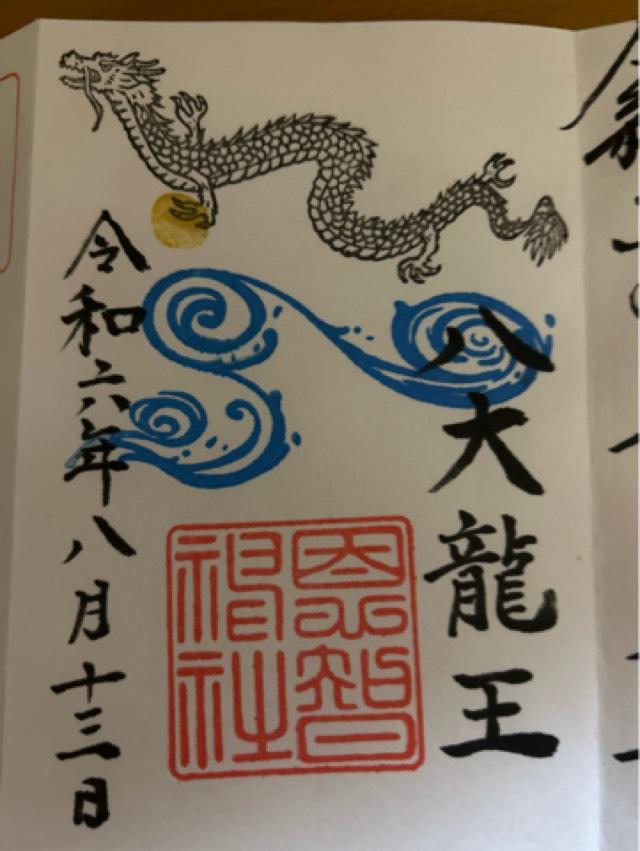 八大龍王
恩智
神社
令和六年八月十三日